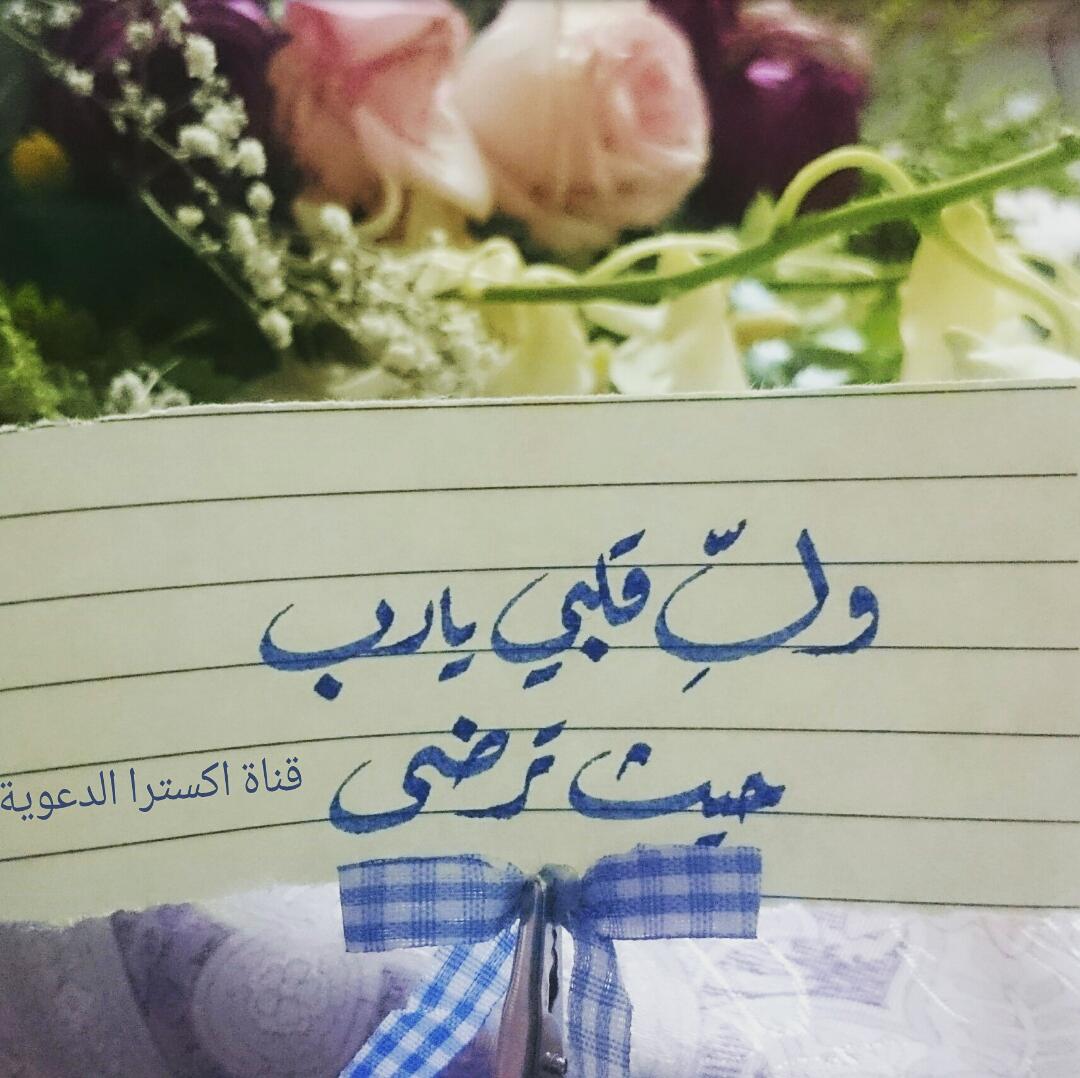 ولِّ قلبي يارب
حيث ترضى
قناة اكسترا الدعوية